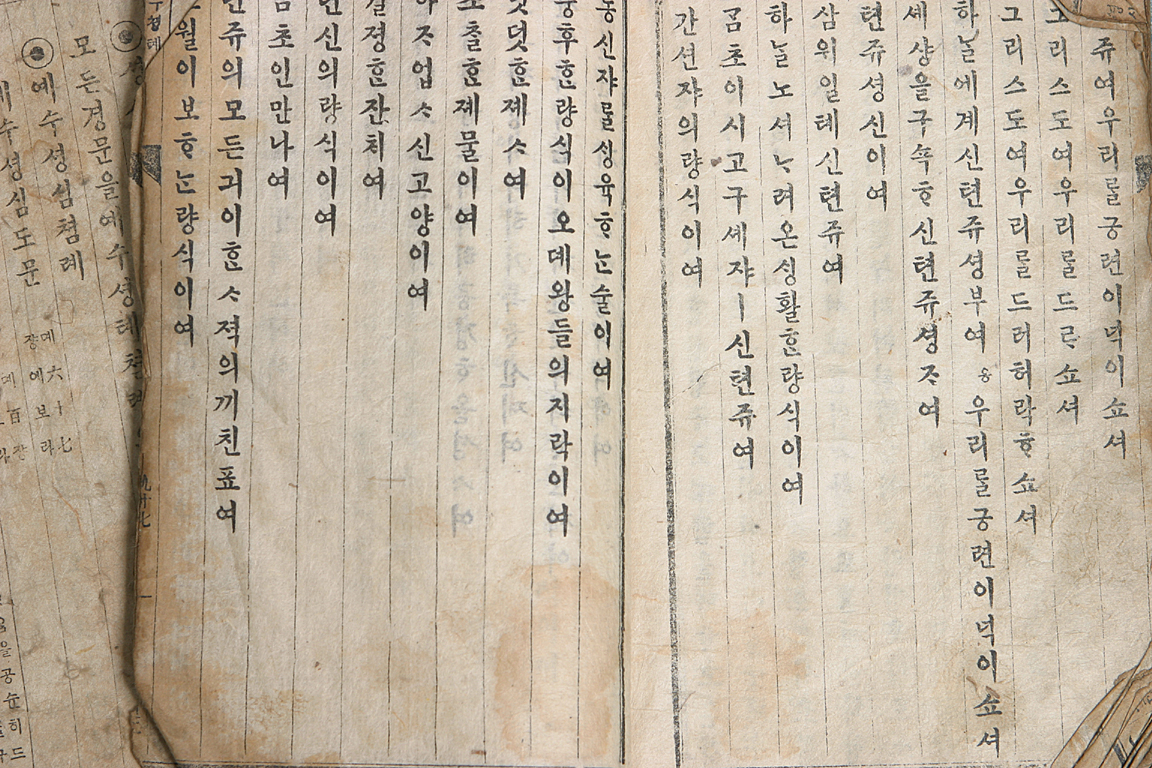 쥬여우리ᄅᆞᆯ긍련이넉이쇼셔
리스도여우리ᄅᆞᆯ드ᄅᆞ쇼셔
그리스도여우리ᄅᆞᆯ드러허락ᄒᆞ쇼셔
하ᄂᆞᆯ에계신텬쥬셩부여 응 우리ᄅᆞᆯ긍련이넉이쇼셔
셰샹을구쇽ᄒᆞ신텬쥬셩ᄌᆞ여
텬쥬셩신이여
삼위일톄신텬쥬여
하ᄂᆞᆯ노셔ᄂᆞ려온싱활ᄒᆞᆫ량식이여
곰초이시고구셰쟈ㅣ신텬쥬여
간션쟈의량식이여
동신쟈ᄅᆞᆯ싱육ᄒᆞᄂᆞᆫ술이여
후ᄒᆞᆫ량식이오뎨왕들의지락이여
덧ᄒᆞᆫ졔ᄉᆞ여
졀ᄒᆞᆫ졔물이여
ᄌᆞ업ᄉᆞ신고양이여
졍ᄒᆞᆫ잔치여
신의량식이여
초인만나여
쥬의모든긔이ᄒᆞᆫᄉᆞ젹의끼친표여
월이보ᄒᆞᄂᆞᆫ량식이여
모든경문을예수셩톄쳠례
예수셩심쳠례
수셩심도문